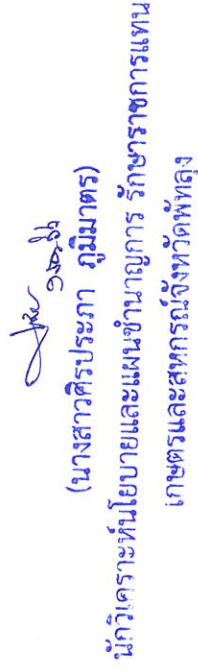 (นางสาวศิรประภา ภูมิมาตร)
นักวิเคราะห์นโยบายและแผนชำนาญการ รักษาราชการแทน
เกษตรและสหกรณ์จังหวัดพัทลุง